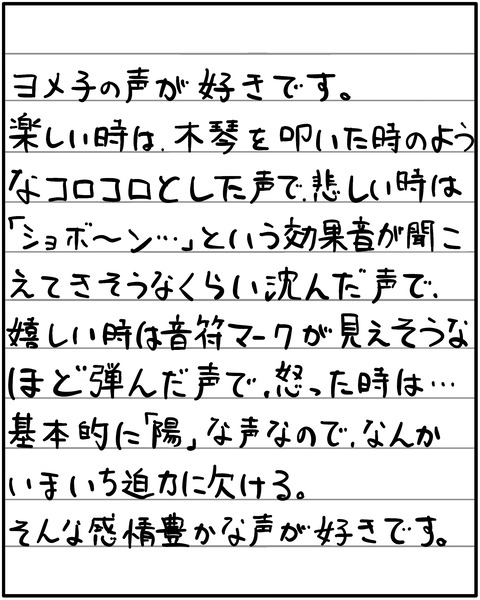 ヨメ子の声が好きです。
楽しい時は、木琴を叩いた時のよう
なコロコロとした声で、悲しい時は
「ショボ〜ン…」という効果音が聞こ
えてきそうなくらい沈んだ声で、
嬉しい時は音符マークが見えそうな
ほど弾んだ声で、怒った時は…
基本的に「陽」な声なので、なんか
いまいち迫力に欠ける。
そんな感情豊かな声が好きです。